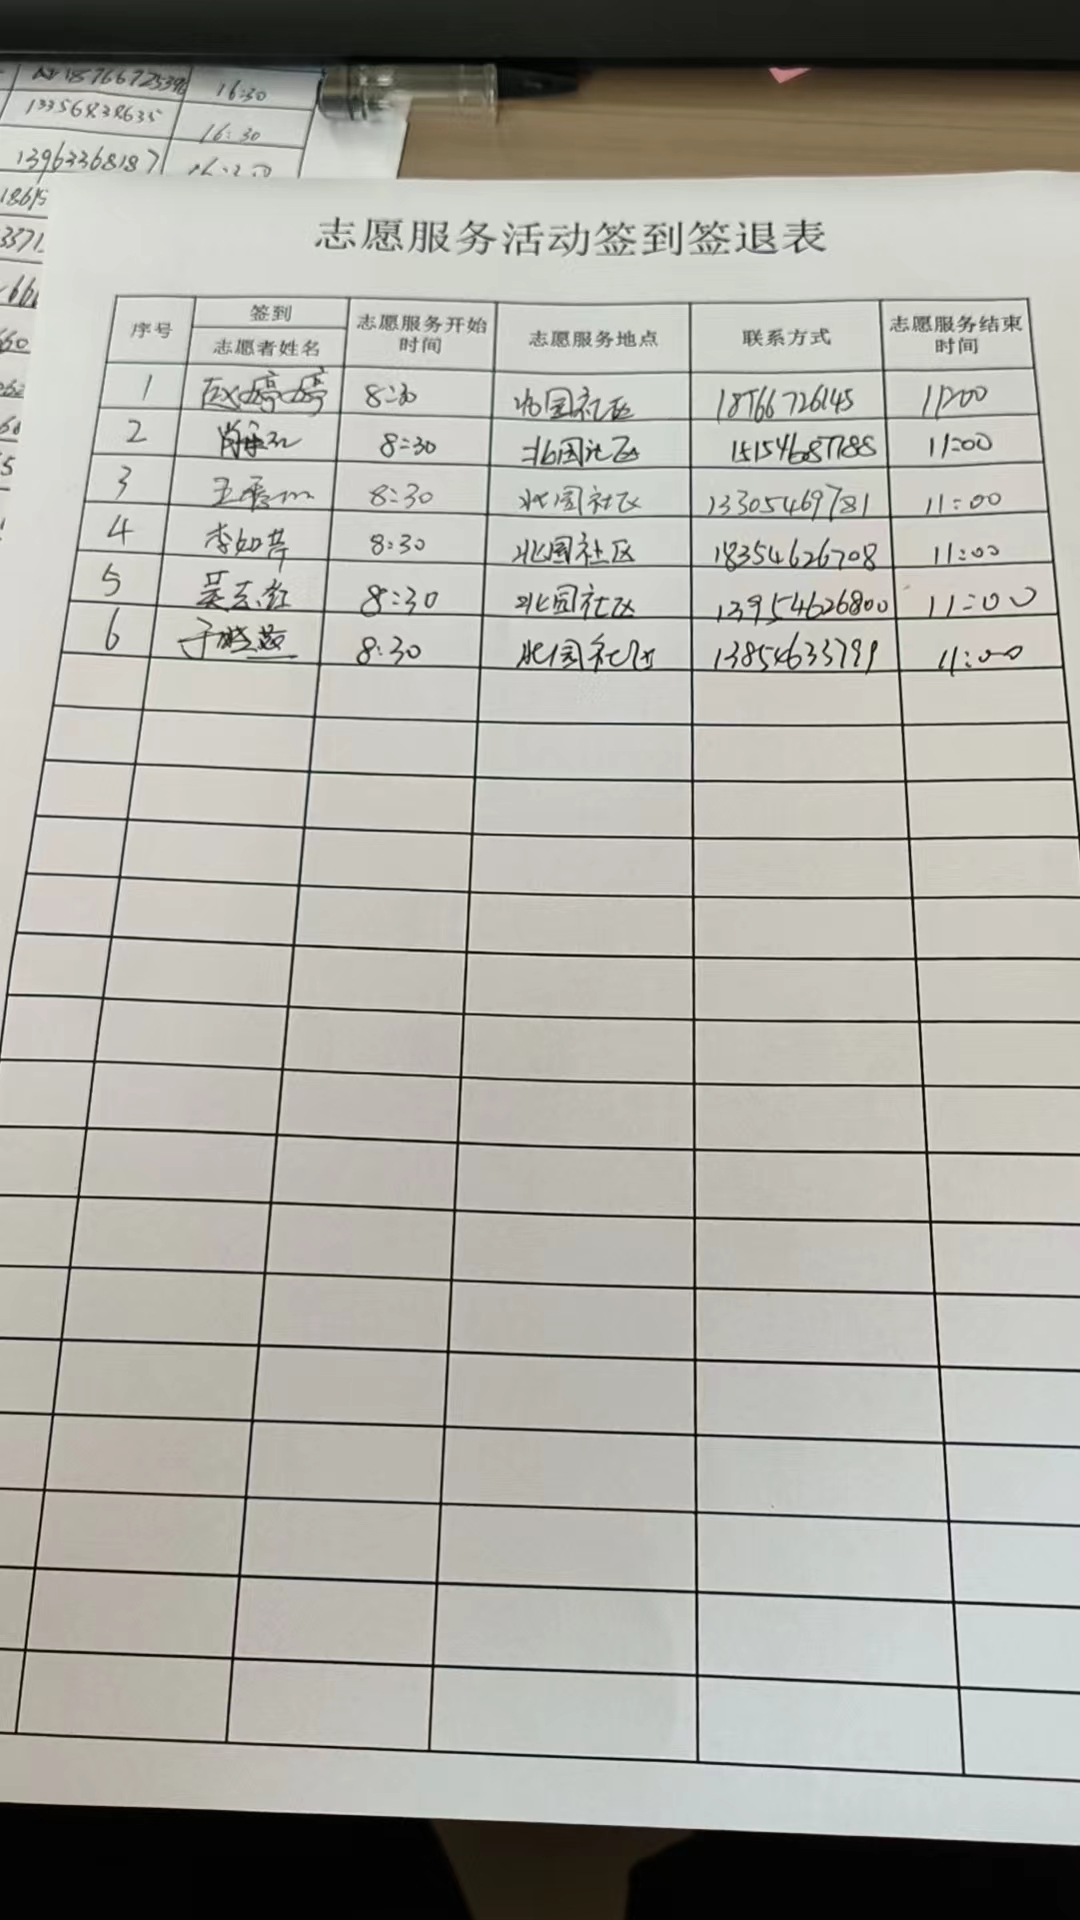 16:30
13356838635 16:30
13963368187
志愿服务活动签到签退表
序号 签到 志愿者姓名 志愿服务开始时间 志愿服务地点 联系方式 志愿服务结束时间
1 赵婷婷 8:30 北国社区 18766726145 11:00
2 8:30 北国社区 15154687788 11:00
3 王秀 8:30 北国社区 13305469781 11:00
4 李如苹 8:30 北国社区 18354626708 11:00
5 吴志红 8:30 北国社区 13954626800 11:00
6 于晓燕 8:30 北国社区 13854633799 11:00